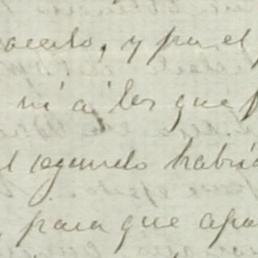 hacerlo, y por el p
ni a los que p
el segundo habría
, para que apa